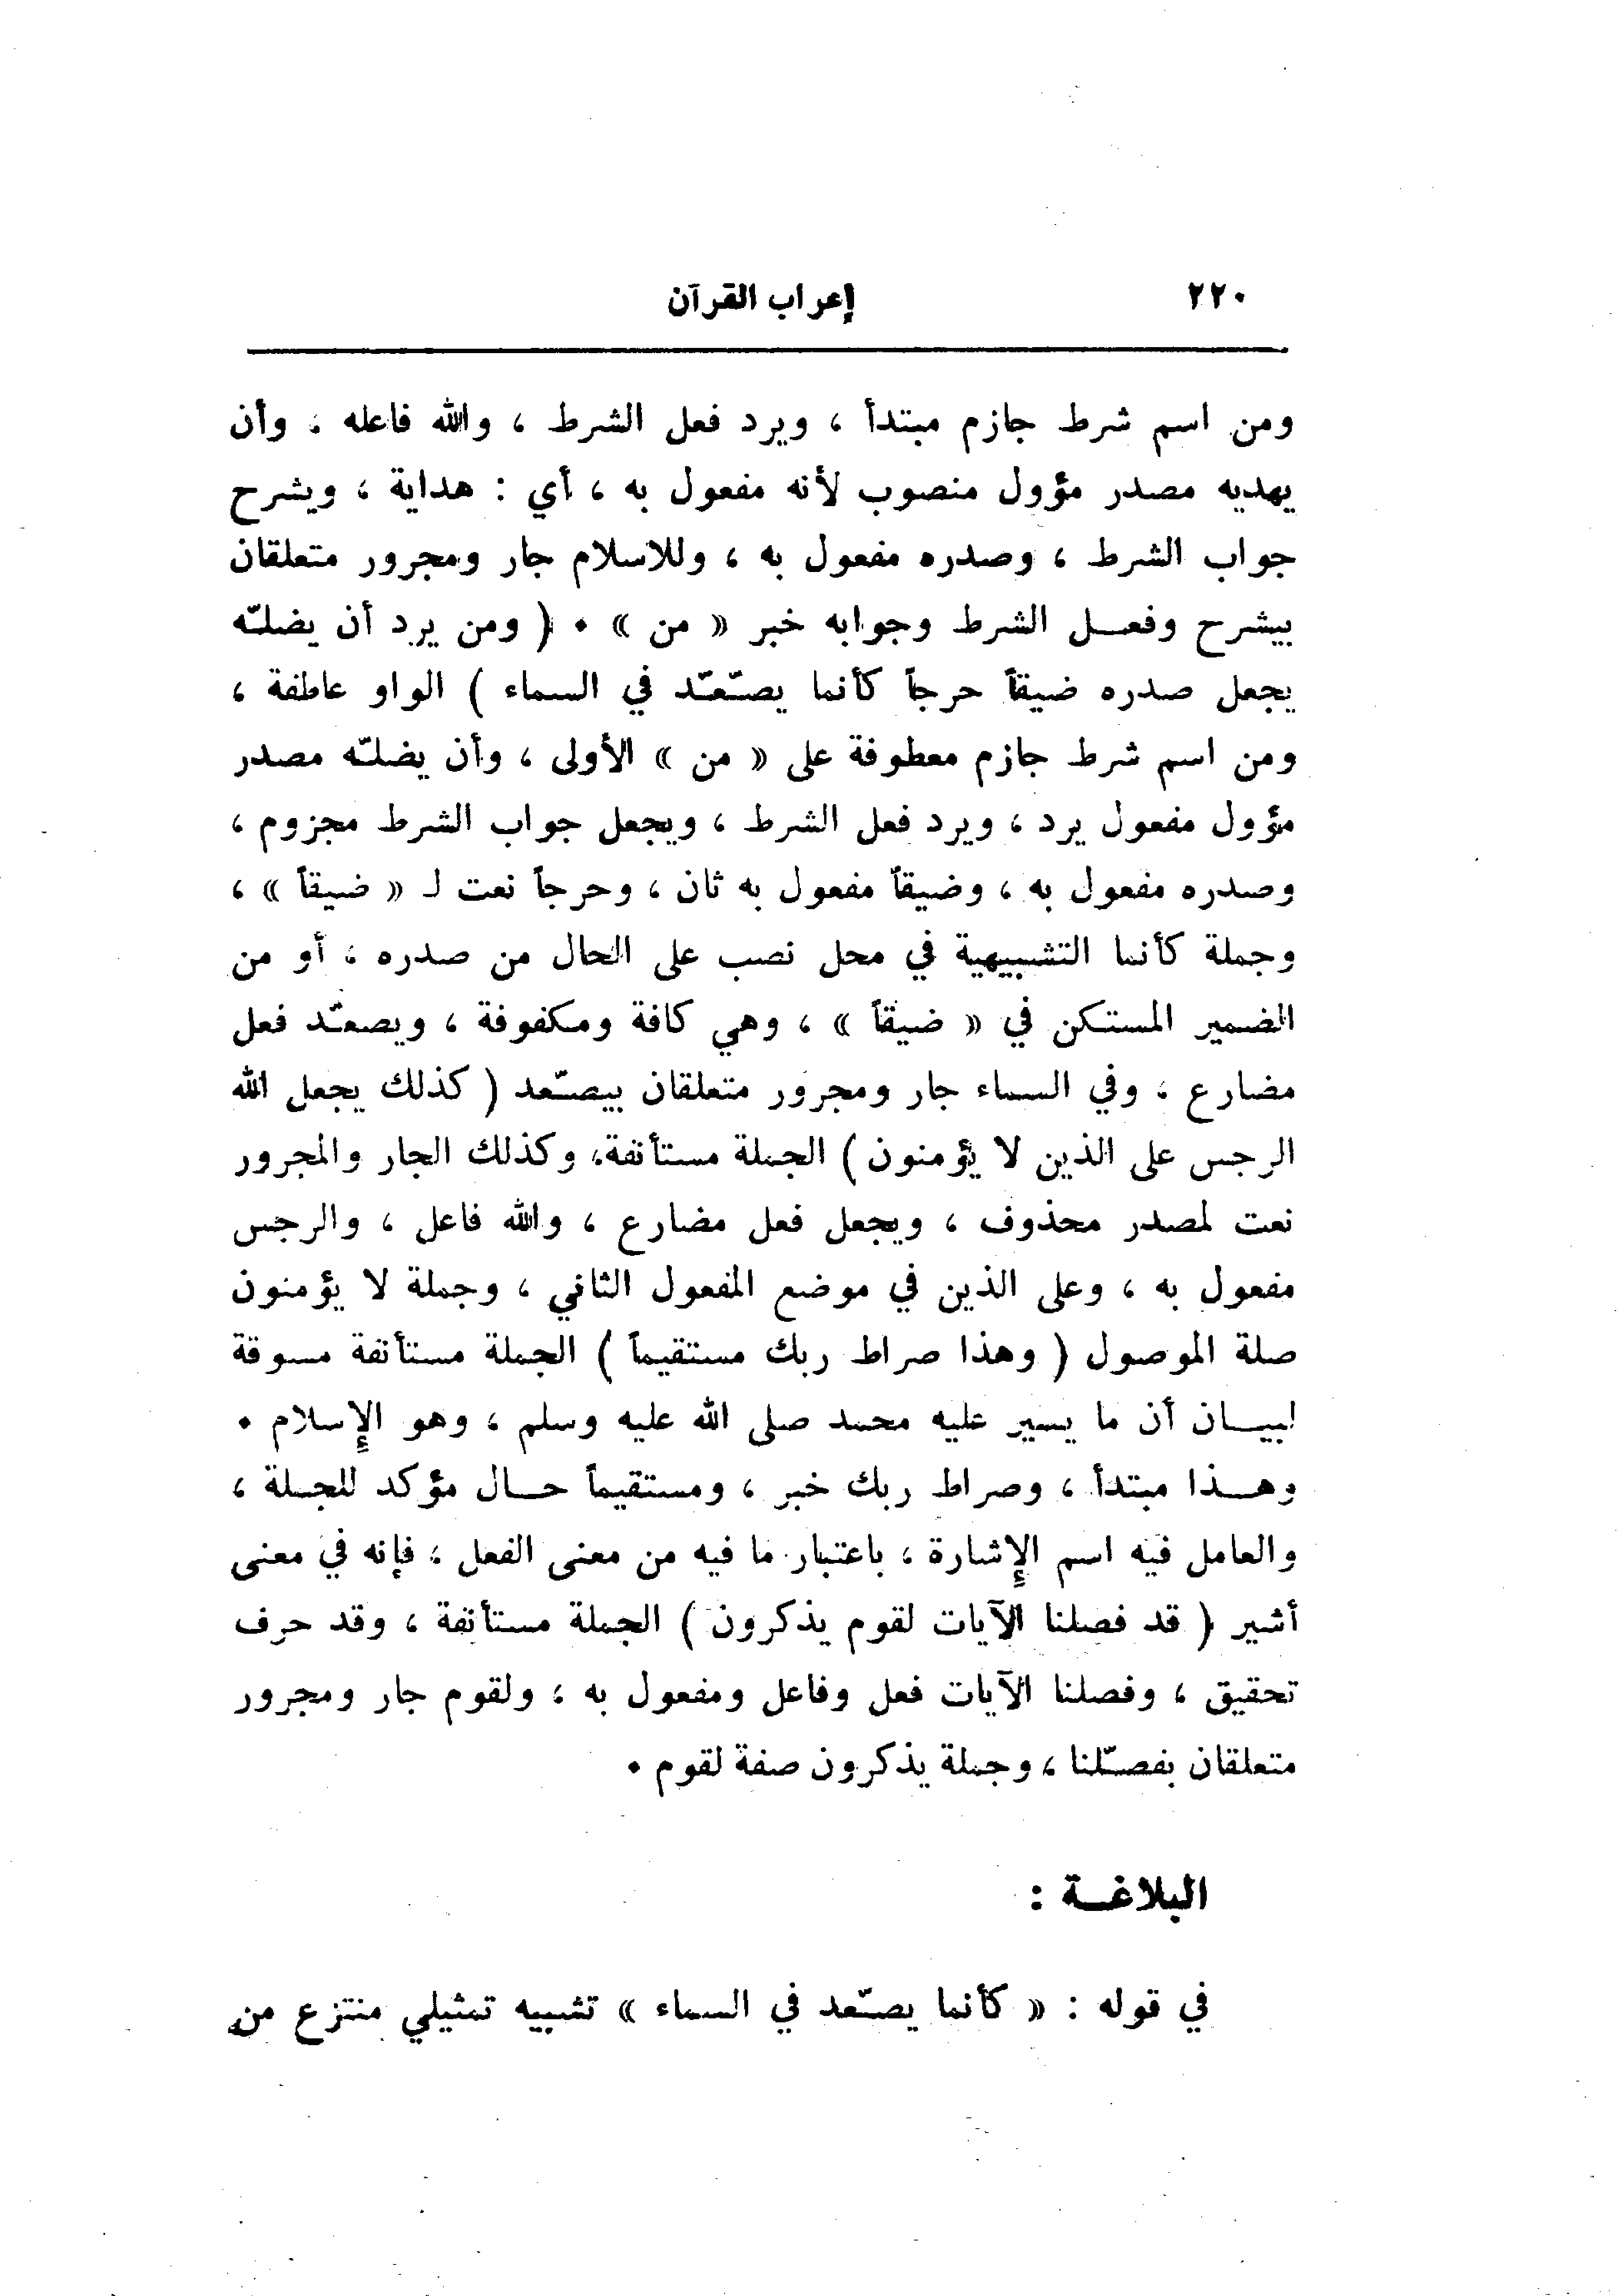 ٢٢٠ إعراب القرآن
ومن اسم شرط جازم مبتدأ ، ويرد فعل الشرط ، والله فاعله ، وأن
يهديه مصدر مؤول منصوب لأنه مفعول به ، أي : هداية ، ويشرح
جواب الشرط ، وصدره مفعول به ، وللاسلام جار ومجرور متعلقان
بيشرح وفعـل الشرط وجوابه خبر « من » . ( ومن يرد أن يضلّه
يجعل صدره ضيقاً حرجاً كأنما يصّعّد في السماء ) الواو عاطفة ،
ومن اسم شرط جازم معطوفة على « من » الأولى ، وأن يضلّه مصدر
مؤول مفعول يرد ، ويرد فعل الشرط ، ويجعل جواب الشرط مجزوم ،
وصدره مفعول به ، وضيقاً مفعول به ثان ، وحرجاً نعت لـ « ضيقاً » ،
وجملة كأنما التشبيهية في محل نصب على الحال من صدره ، أو من
الضمير المستكن في « ضيقاً » ، وهي كافة ومكفوفة ، ويصعّد فعل
مضارع ، وفي السماء جار ومجرور متعلقان بيصّعد ( كذلك يجعل الله
الرجس على الذين لا يؤمنون ) الجملة مستأنفة، وكذلك الجار والمجرور
نعت لمصدر محذوف ، ويجعل فعل مضارع ، والله فاعل ، والرجس
مفعول به ، وعلى الذين في موضع المفعول الثاني ، وجملة لا يؤمنون
صلة الموصول ( وهذا صراط ربك مستقيماً ) الجملة مستأنفة مسوقة
لبيـان أن ما يسير عليه محمد صلى الله عليه وسلم ، وهو الإسلام .
وهـذا مبتدأ ، وصراط ربك خبر ، ومستقيماً حـال مؤكد للجملة ،
والعامل فيه اسم الإشارة ، باعتبار ما فيه من معنى الفعل ، فإنه في معنى
أشير ( قد فصلنا الآيات لقوم يذكرون ) الجملة مستأنفة ، وقد حرف
تحقيق ، وفصلنا الآيات فعل وفاعل ومفعول به ، ولقوم جار ومجرور
متعلقان بفصّلنا ، وجملة يذكرون صفة لقوم .
البلاغـة :
في قوله : « كأنما يصّعد في السماء » تشبيه تمثيلي منتزع من